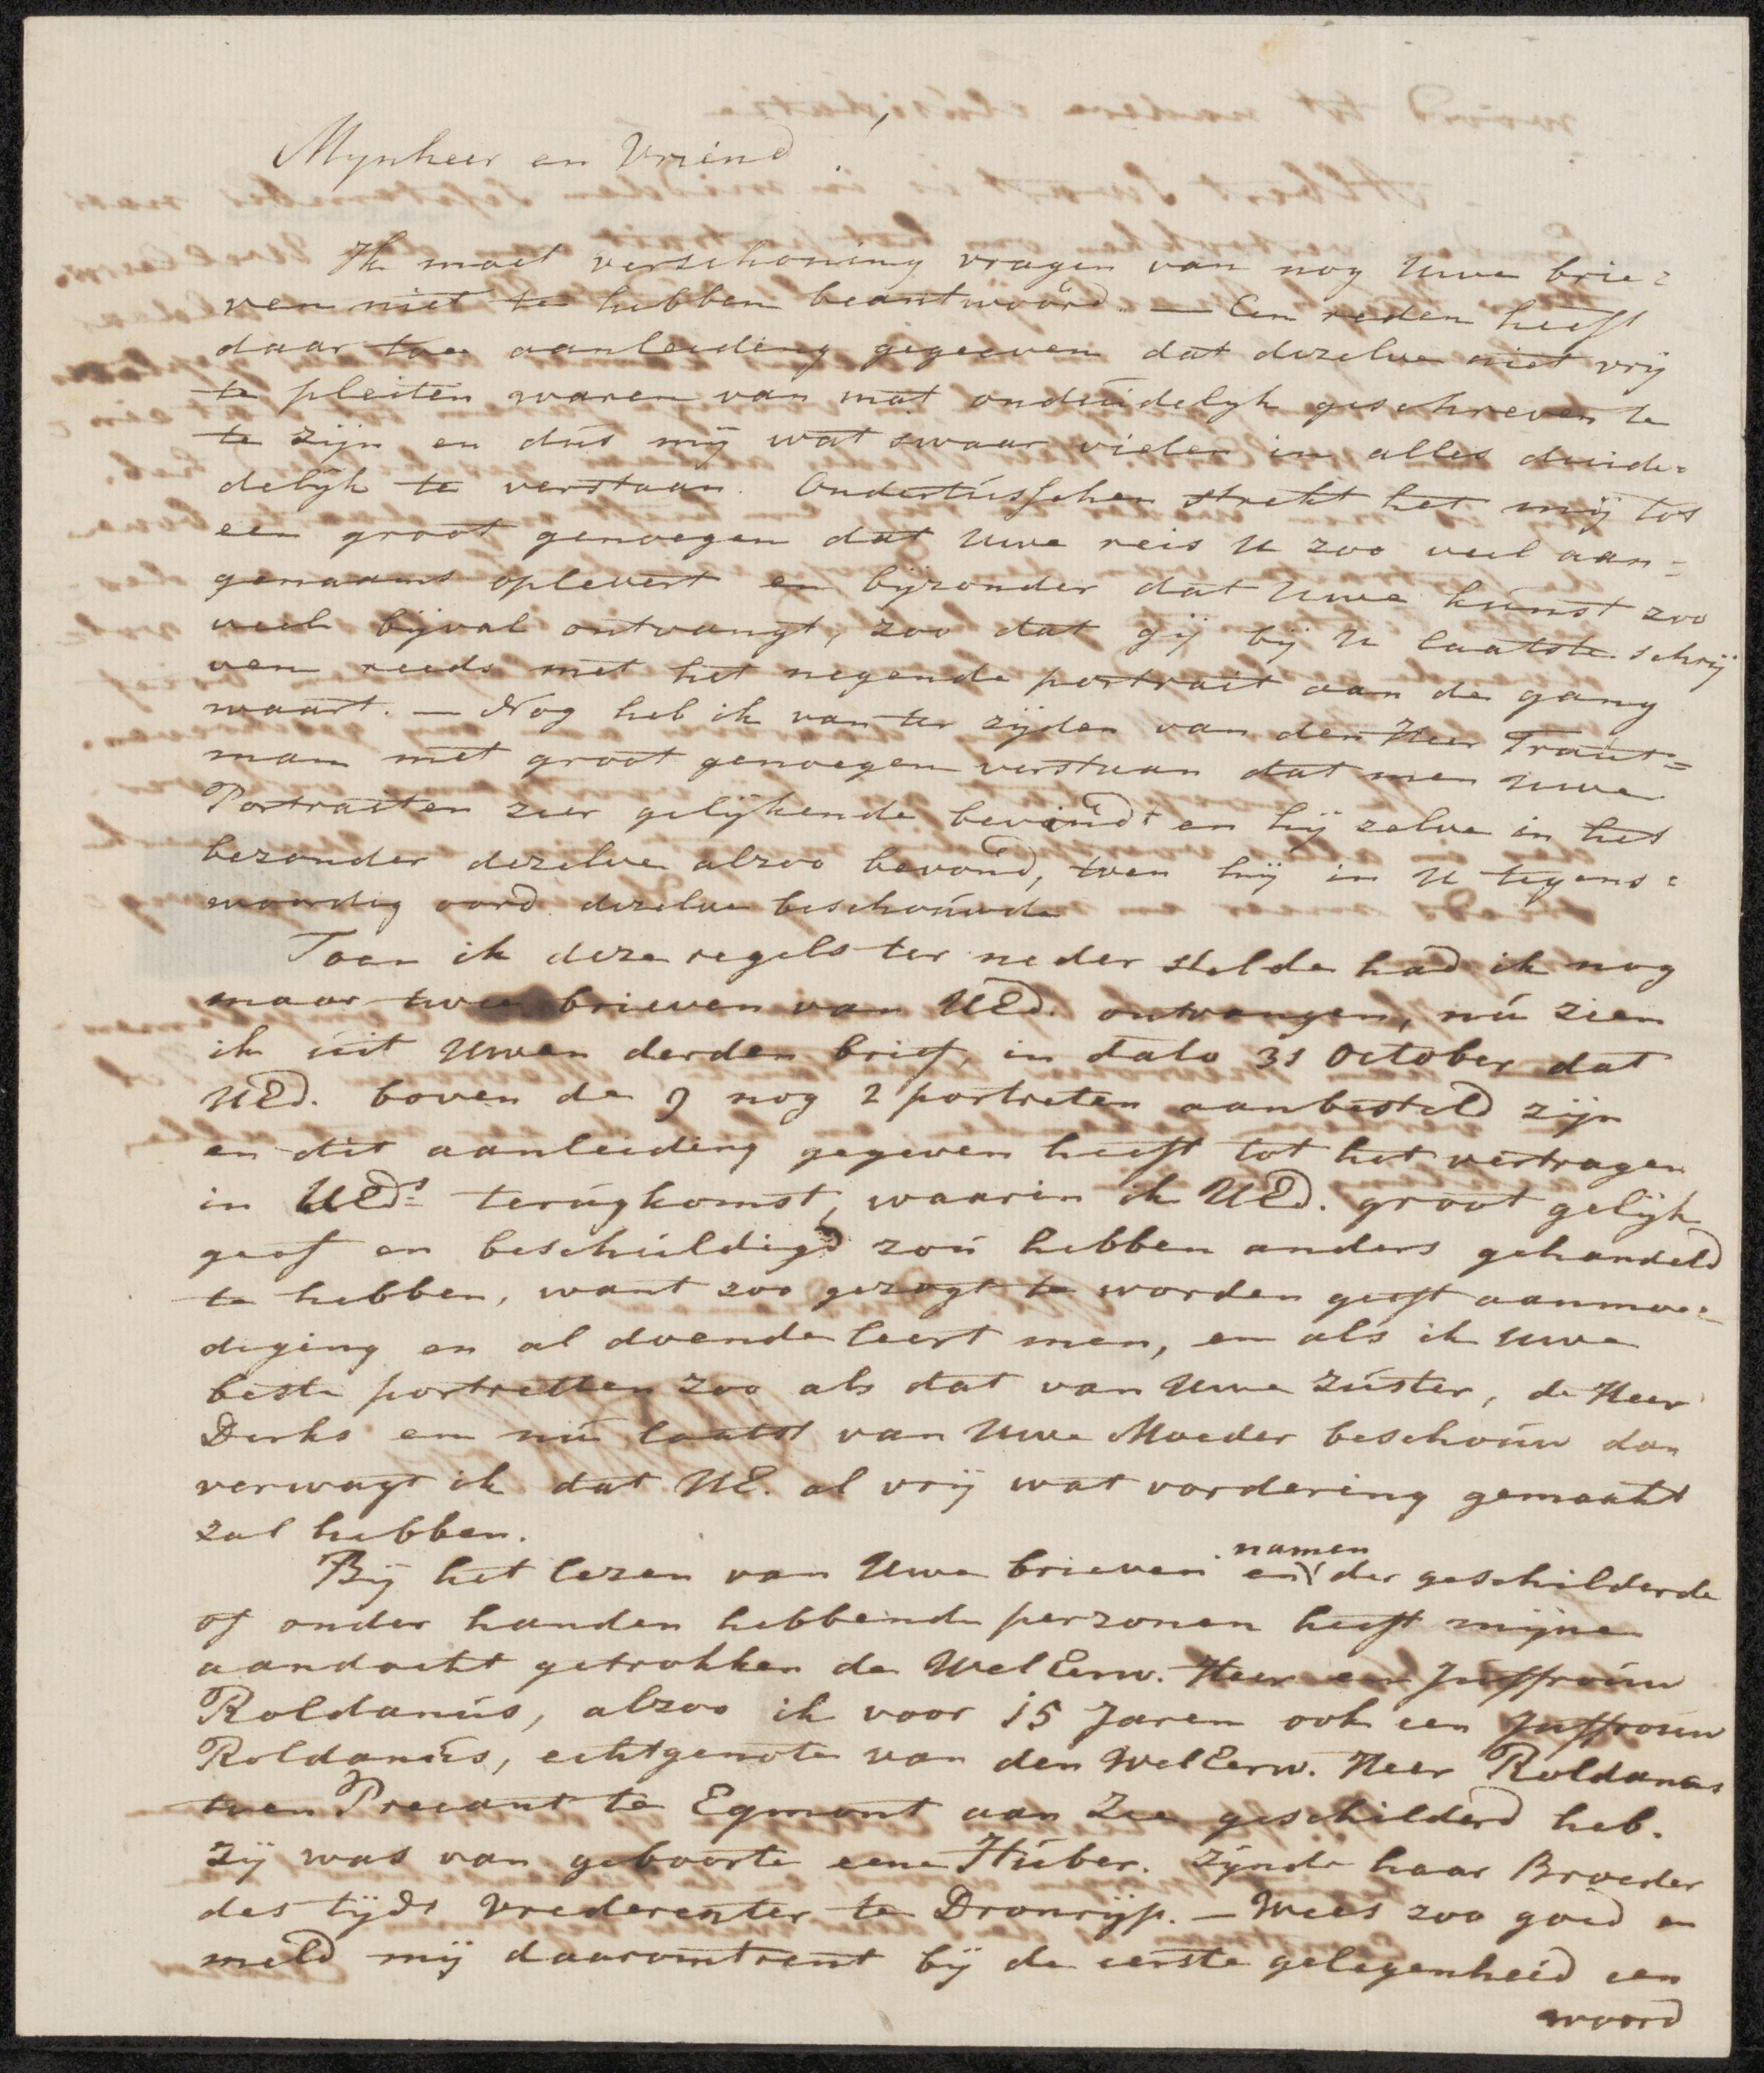 Mynheer en Vriend!
Ik moet verschoning vragen van nog Uwe brie=
ven niet te hebben beantwoord. — Een reden heeft
daar toe aanleiding gegeeven dat dezelve niet vrij
te pleiten waren van wat onduidelyk geschreven te
te zijn en dus mij wat swaar vielen in alles duide=
delijk te verstaan. Ondertusschen strekt het mij tot
een groot genoegen dat Uwe reis U zoo veel aan=
genaams oplevert en bijzonder dat Uwe kunst zoo
veel bijval ontvangt, zoo dat gij bij U laatste schrij
ven reeds met het negende portrait aan de gang
waart. — Nog heb ik van ter zijden van den Heer Traut=
man met groot genoegen verstaan dat men Uwe
Portraiten zeer gelijkende bevindt en hij zelve in het
bezonder dezelve alzoo bevond, toen hij in U tegens=
woordig oord dezelve beschouwde
Toen ik deze regels ter neder stelde had ik nog
maar twee brieven van UEd. ontvangen, nú zien
ik uit Uwen derden brief, in dato 31 October dat
UEd. boven de 9 nog 2 portreten aanbesteld zijn
en dit aanleiding gegeven heeft tot het vertragen
in UEds terugkomst, waarin ik UEd. groot gelijk
geef en beschuldigd zou hebben anders gehandeld
te hebben, want zoo gezogt te worden geeft aanmoe=
diging en al doende leert men, en als ik Uwe
beste portretten zoo als dat van Uwe Zuster, de Heer
Derks en nú laatst van Uwe Moeder beschouw dan
verwagt ik dat UE. al vrij wat vordering gemaakt
zal hebben.
Bij het lezen van Uwe brieven en namen der geschilderde
of onder handen hebbende perzonen heeft mijne
aandacht getrokken de Wel Eerw. Heer en Juffrouw
Roldanus, alzoo ik voor 15 Jaren ook een Juffrouw
Roldanus, echtgenote van den Wel Eerw. Heer Roldanus
toen Precant te Egmont aan Zee geschilderd heb.
Zij was van geboorte eene Huber. Zijnde haar Broeder
des tijds Vrederegter te Dronrijp. — Wees zoo goed en
meld mij daaromtrent bij de eerste gelegenheid een
woord